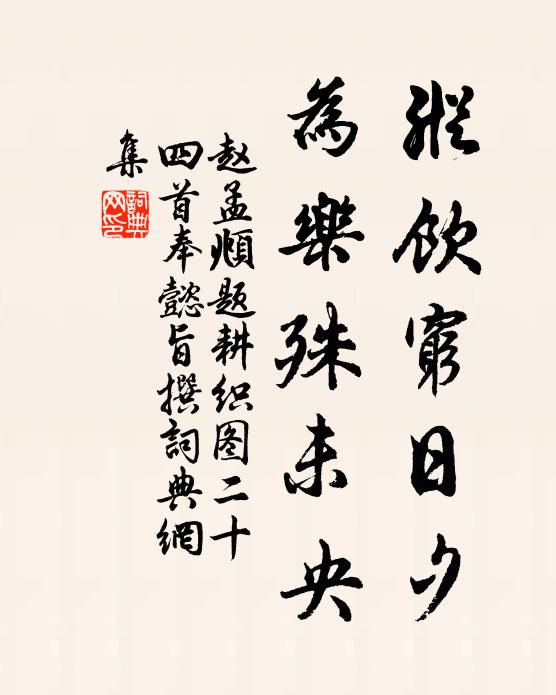 縱飲窮日夕
為樂殊未央
赵孟頫题耕织图二十
四首奉懿旨撰詞典網
集
詞典
网印